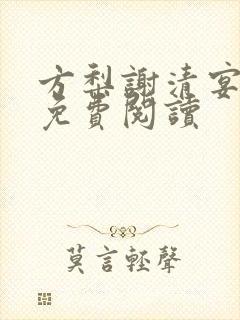 方梨謝清宴
免費閱讀
莫言輕聲